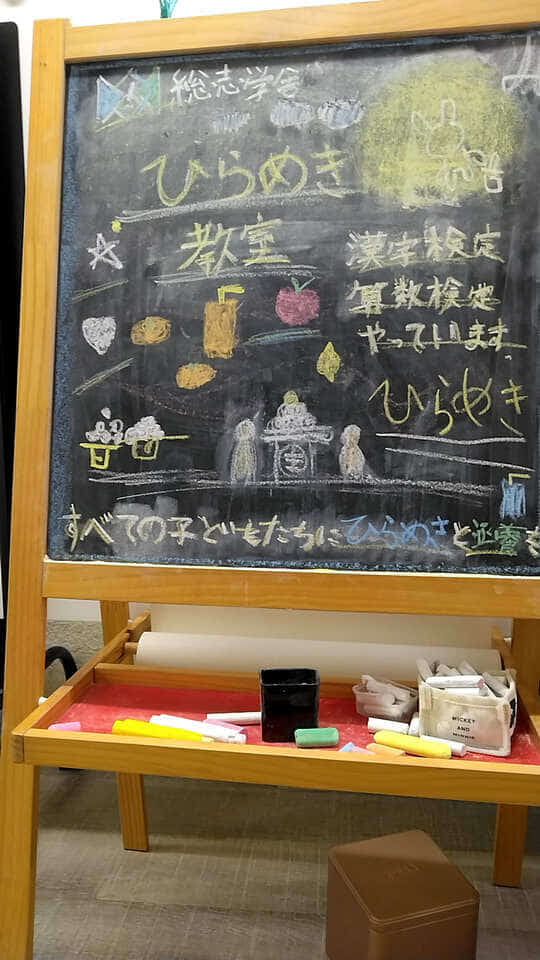 総志学舎
ひらめき
教室
漢字検定
算数検定
やっています
ひらめき
すべての子どもたちにひらめきと
MICKEY
AND
MINNIE